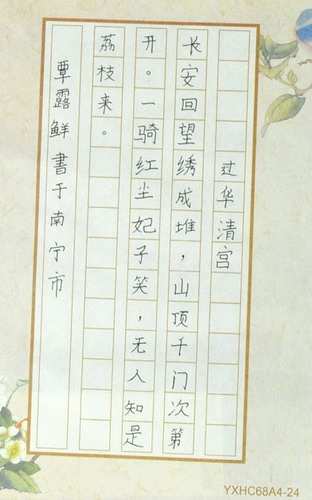 过华清宫
长安回望绣成堆，山顶千门次第
开。一骑红尘妃子笑，无人知是
荔枝来。
覃露鲜書于南宁市
YXHC68A4-24